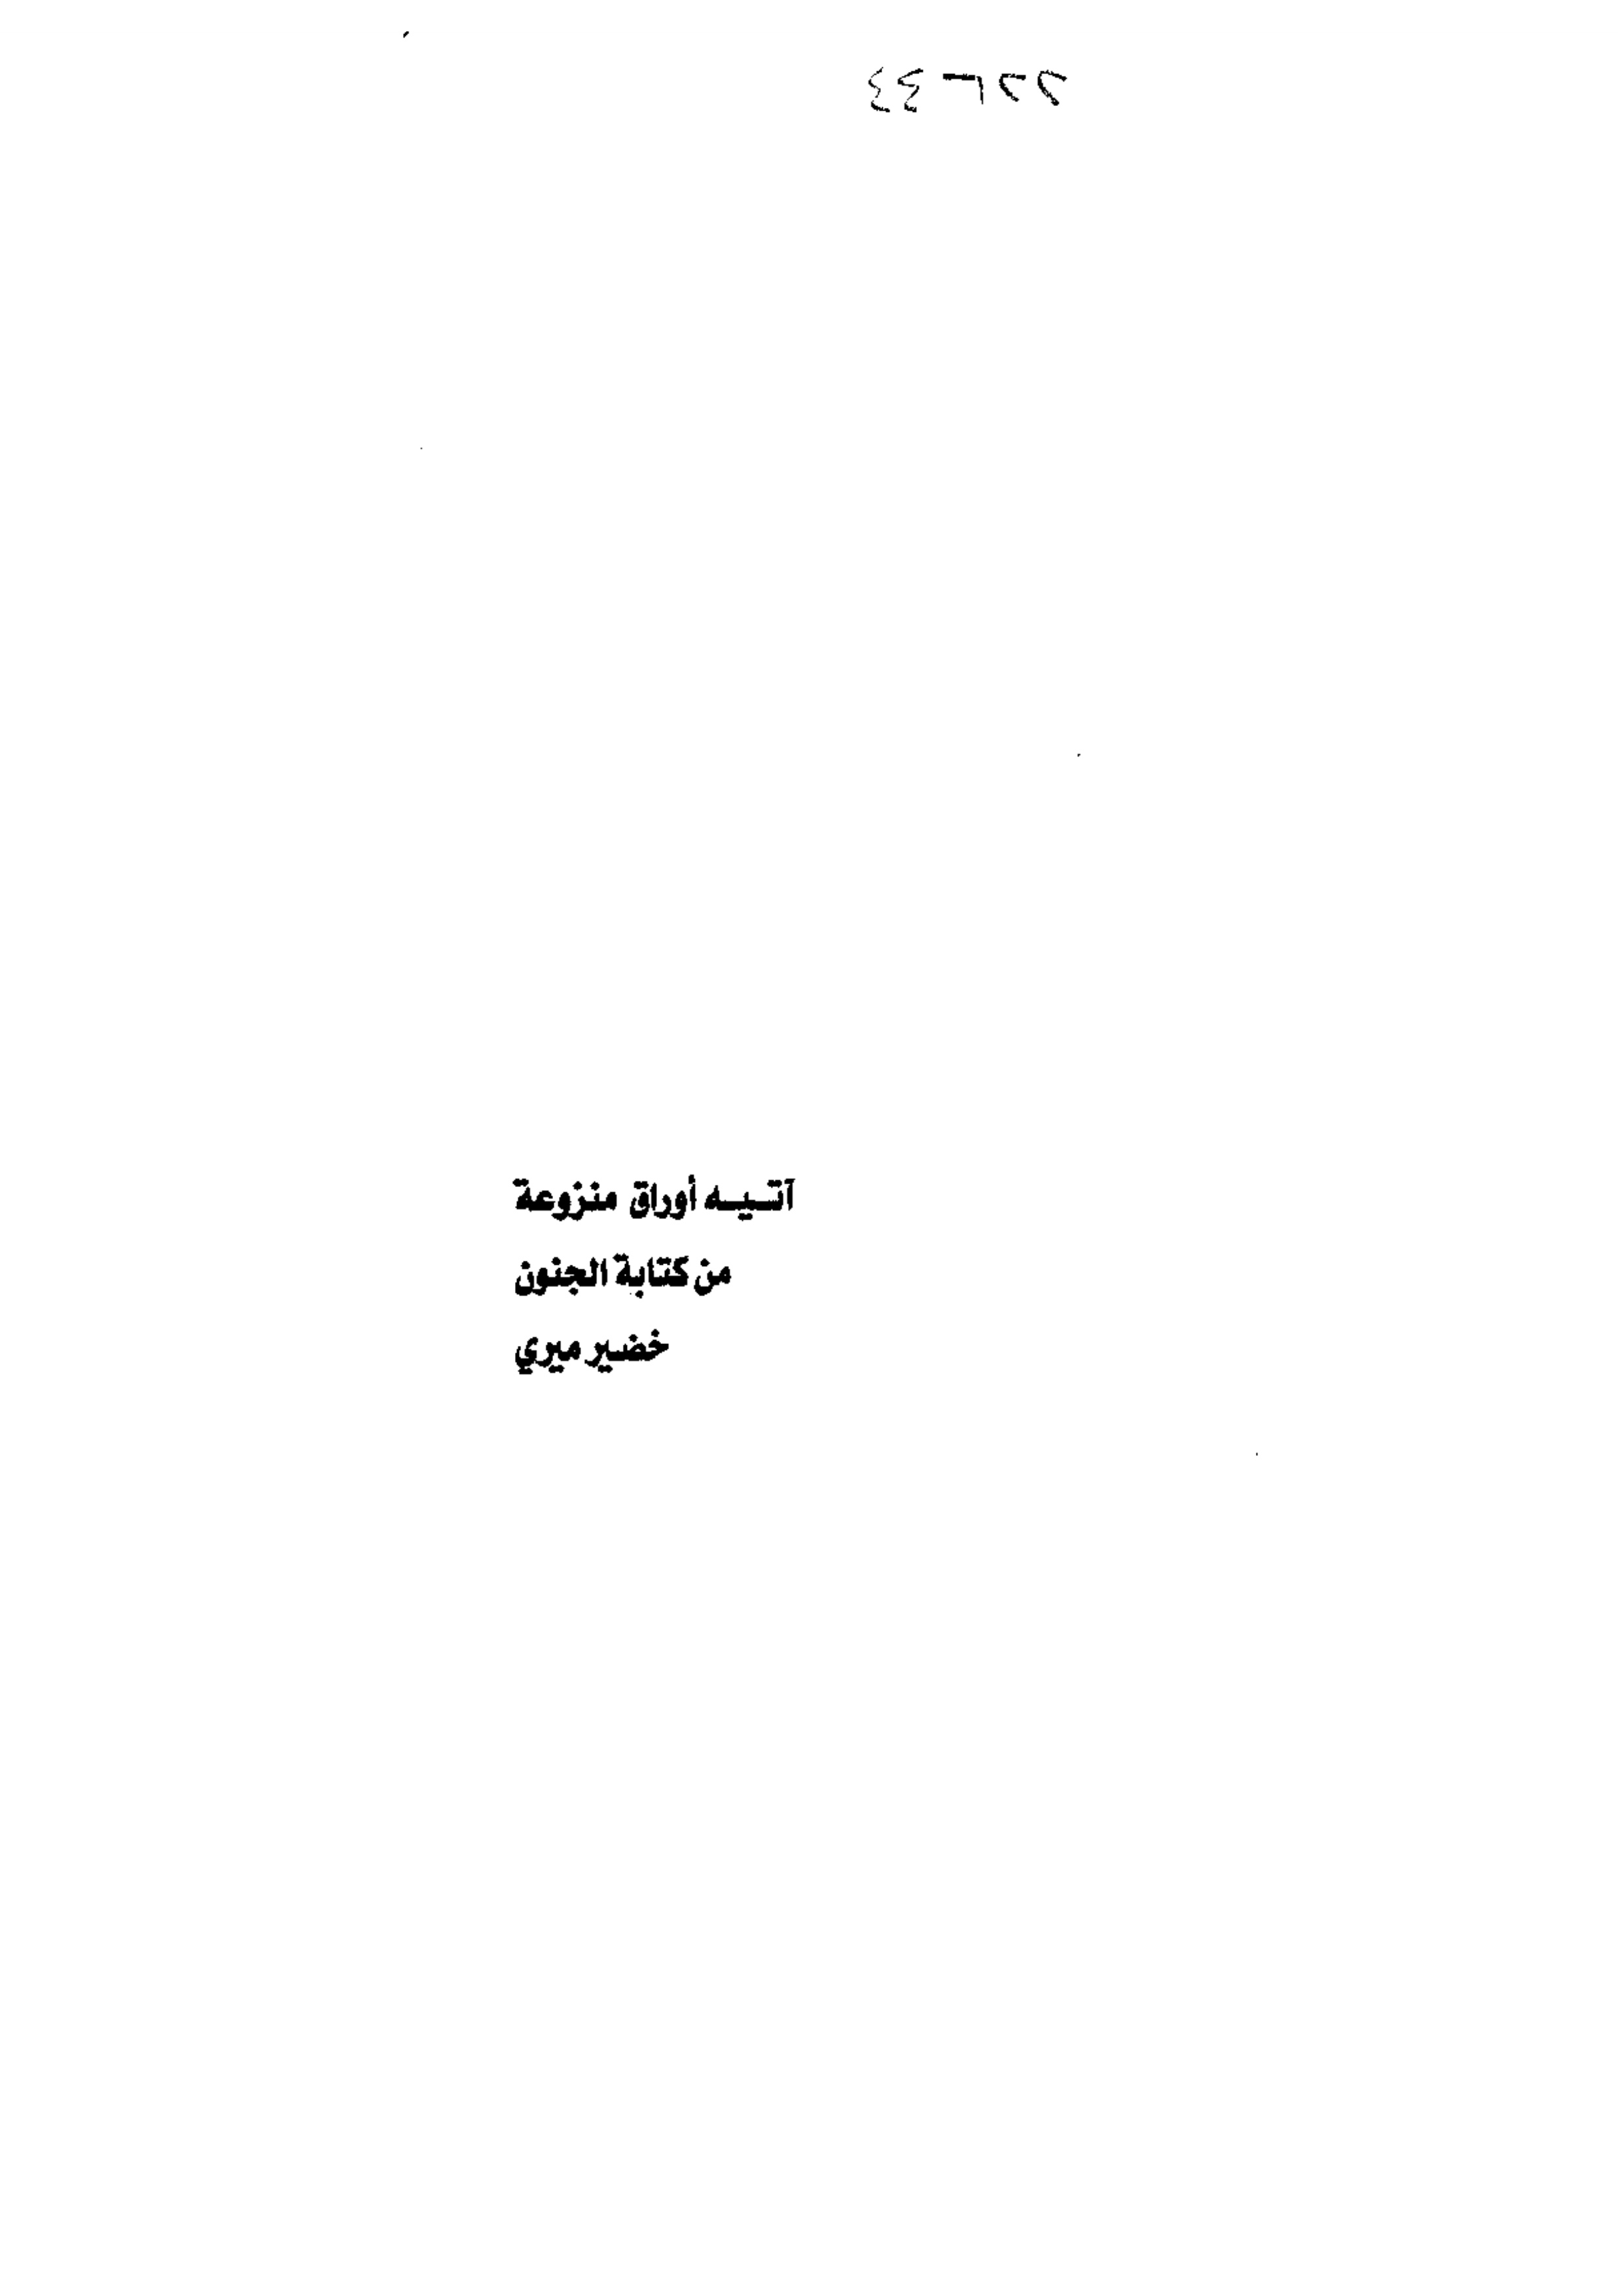 آتـيـه أوراق منزوعة
من كتابة الجنون
خضير ميري